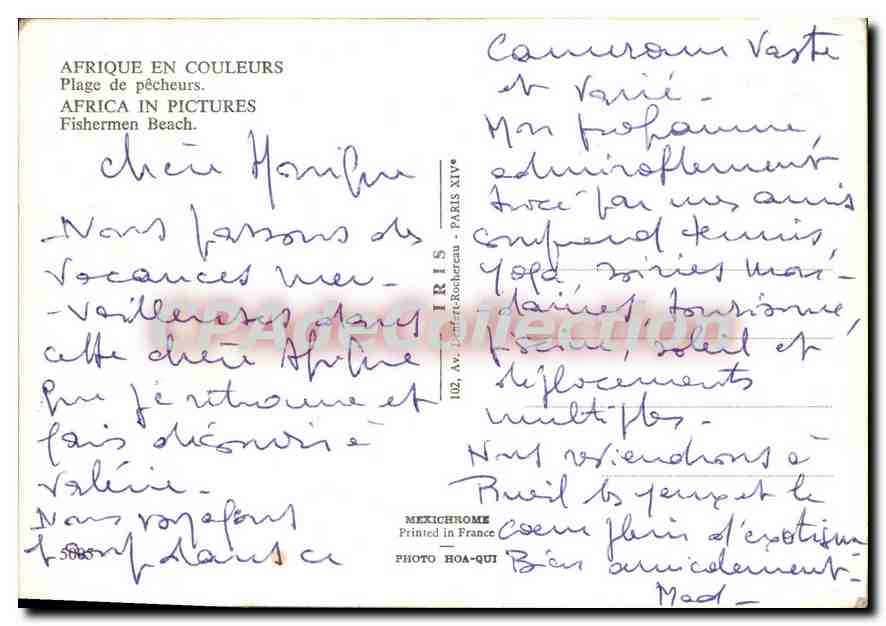 AFRIQUE EN COULEURS
Plage de pêcheurs.
AFRICA IN PICTURES
Fishermen Beach.
Chère Monique
Nous passons des
vacances mer-
-veilleuses dans
cette chère Afrique
que je retrouve et
fais découvrir à
Valérie.
Nous voyageons
dans ce
5085
IRIS
102, Av. Denfert-Rochereau - PARIS XIVe
MEXICHROME
Printed in France
PHOTO HOA-QUI
Cameroun vaste
et varié.
Mon programme,
admirablement
tracé par mes amis
comprend tennis,
yoga, soirées mon-
daines, tourisme,
piscine, soleil et
déplacements
multiples.
Nous reviendrons à
Rueil les yeux et le
coeur pleins d'exotisme
Bien amicalement.
Mad
CPAdeCollection